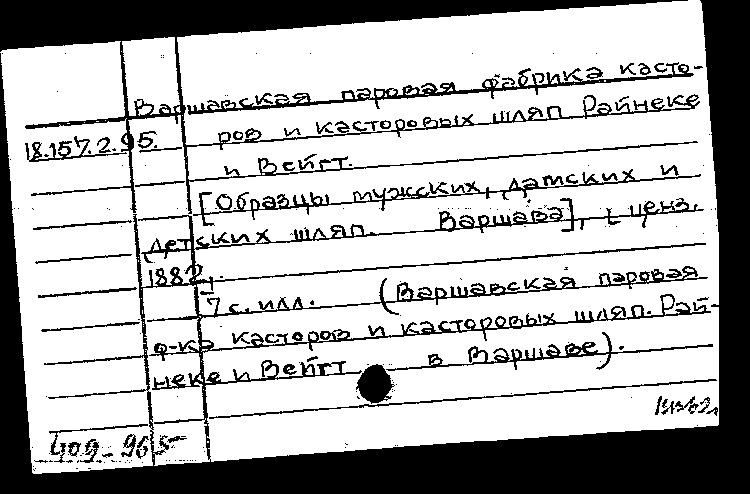 Варшавская паровая фабрика касто-
18.157.2.95. ров и касторовых шляп Райнеке
и Вейгт.
[Образцы мужских, дамских и
детских шляп. Варшава], ц. ценз.
1882.
7 с. илл. (Варшавская паровая
ф-ка касторов и касторовых шляп. Рай-
неке и Вейгт в Варшаве).
409-965